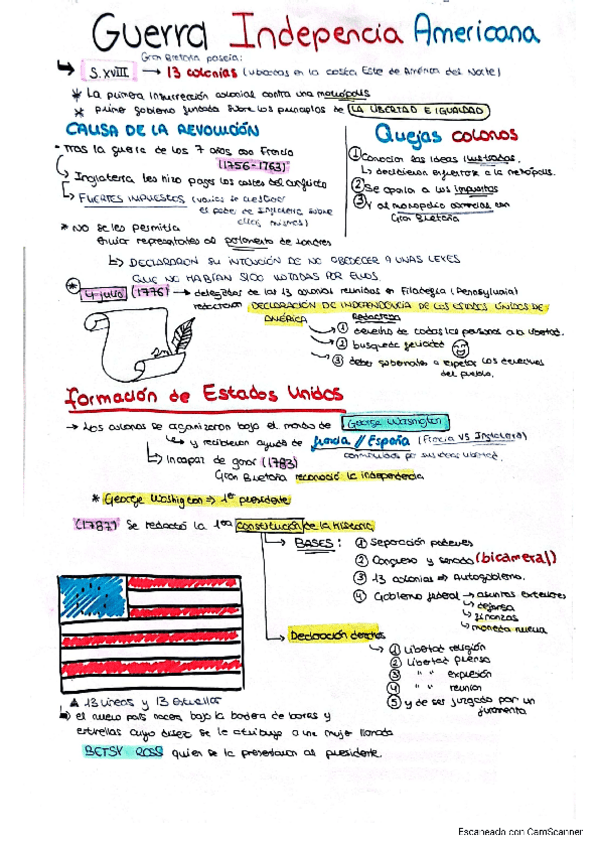 Guerra Indepencia Americana
Gran Bretaña poseía:
S.XVIII → 13 colonias (ubicadas en la costa Este de América del Norte)
* La primera insurrección colonial contra una metrópolis
* primer gobierno fundado sobre los principios de LA LIBERTAD E IGUALDAD
CAUSA DE LA REVOLUCIÓN
- Tras la guerra de los 7 años con Francia
(1756-1763)
Inglaterra les hizo pagar los costes del conflicto
FUERTES IMPUESTOS
de Inglaterra sobre
ellos mismos)
* NO se les permitía
enviar representantes al parlamento de Londres
DECLARARON SU INTENCIÓN DE NO OBEDECER A UNAS LEYES
QUE NO HABÍAN SIDO VOTADAS POR ELLOS.
Quejas colonos
① Conocían las ideas ilustradas.
↳ decidieron enfrentarse a la metrópolis.
② Se oponían a los impuestos
③ Y al monopolio comercial con
Gran Bretaña
* 4 julio (1776) → delegados de las 13 colonias reunidos en Filadelfia (Pensylvania)
redactaron DECLARACIÓN DE INDEPENDENCIA DE LOS ESTADOS UNIDOS DE
AMÉRICA
① derecho de todas las personas a la libertad.
② búsqueda felicidad
③ deber gobernates a respetar los derechos
del pueblo.
formación de Estados Unidos
→ Los colonos se organizaron bajo el mando de George Washington
y recibieron ayuda de francia // España (Francia VS Inglaterra)
por sus ideas libertad.
Incapaz de ganar (1783)
Gran Bretaña reconoció la independencia
* George Washigton ⇒ 1er presidente
(1787) se redactó la 1era constitución de la historia
→ BASES:
① Separación poderes
② Congreso y senado (bicameral)
③ 13 colonias ⇒ Autogobierno.
④ Gobierno federal → asuntos exteriores
↳ defensa
↳ finanzas
↳ moneda nueva
→ Declaración derechos
① libertad religión
② libertad prensa
③ " " expresión
④ " " reunion
⑤ y de ser juzgado por un
juramento
13 líneas y 13 estrellas
el nuevo país nacer bajo la bandera de barras y
estrellas cuyo disez se le atribuyo a una mujer llamada
BETSY ROSS quien se la presentaron al presidente.
Escaneado con CamScanner